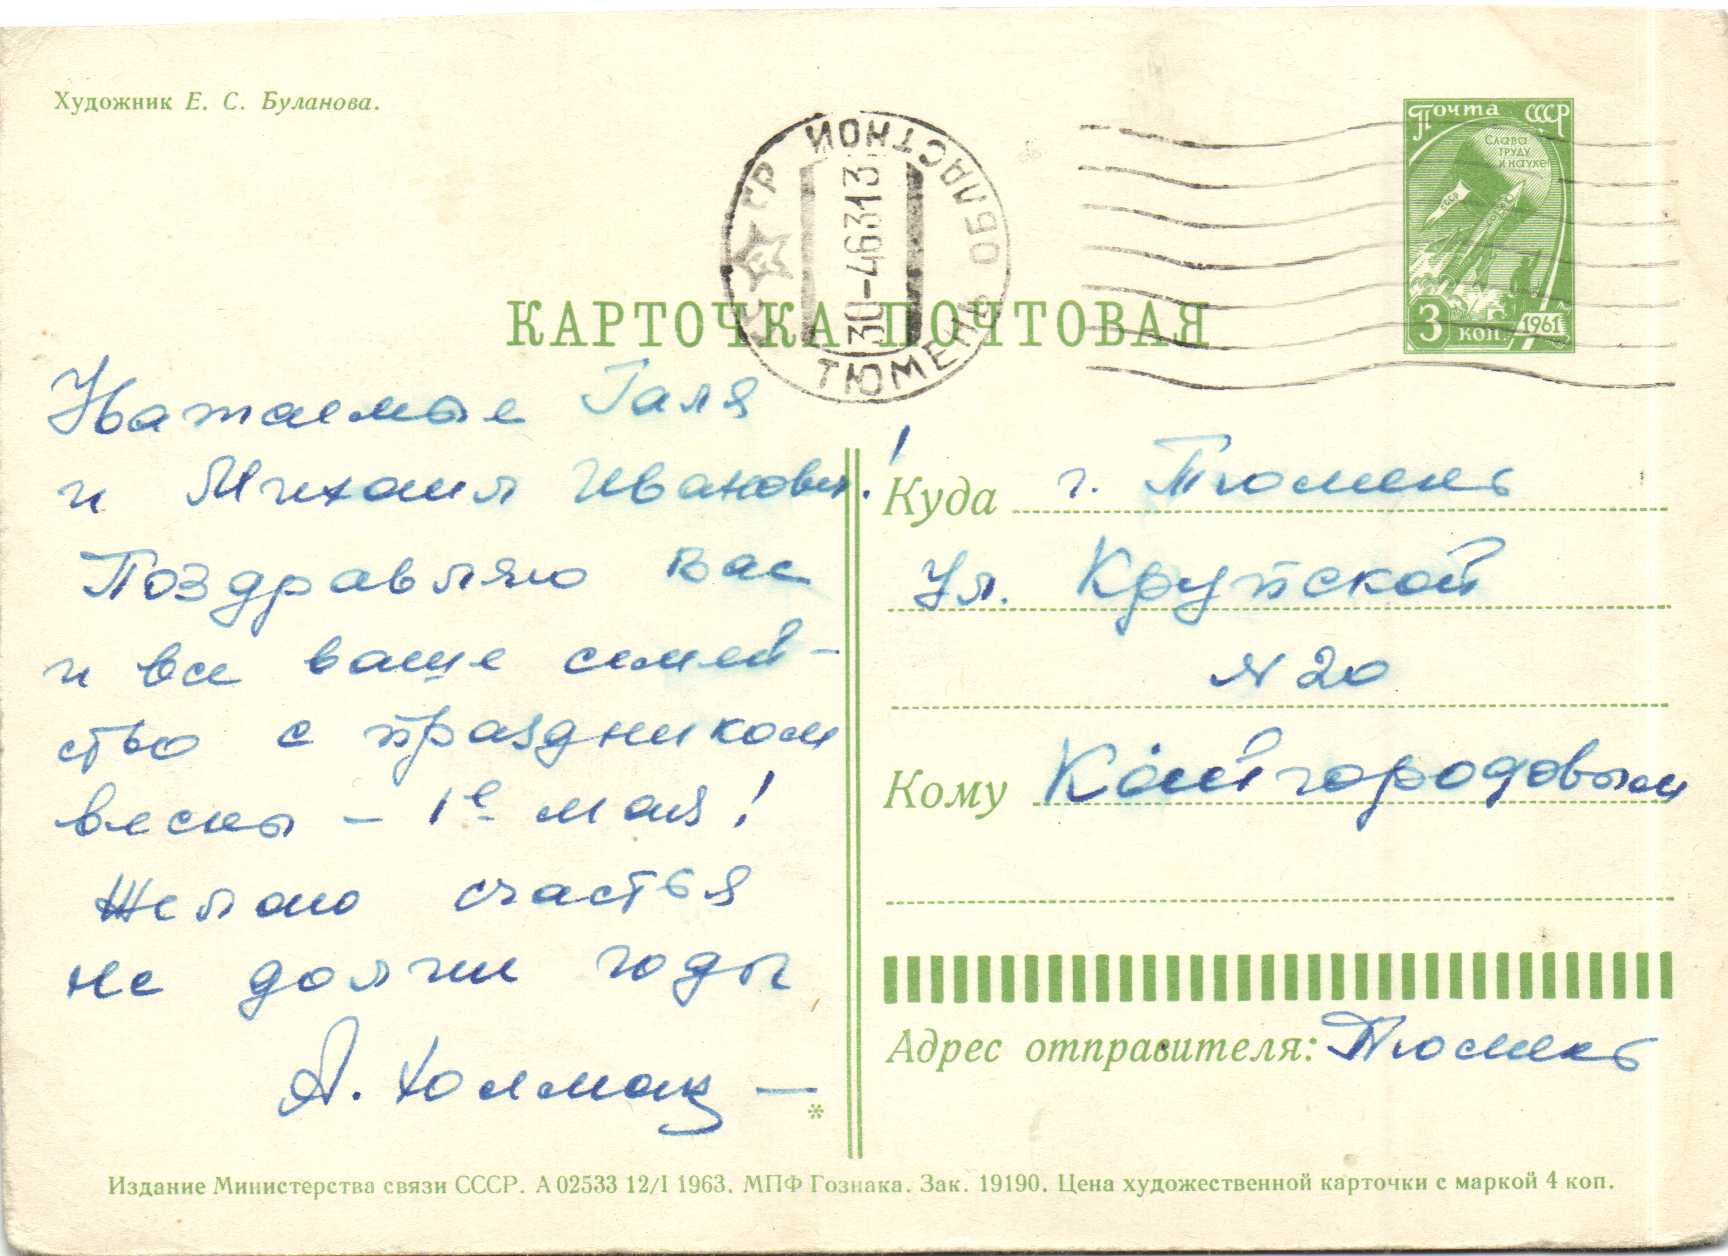 Художник Е. С. Буланова.
Почта СССР
Слава
труду
и науке
СССР
3 коп. 1961
ТЮМЕНЬ ОБЛАСТНОЙ
30-46313
КАРТОЧКА ПОЧТОВАЯ
Уважаемые Галя
и Михаил Иванович!
Поздравляю вас
и все ваше семей-
ство с праздником
весны - 1е мая!
Желаю счастья
на долги годы
А. Холмац
Куда г. Тюмень
Ул. Крупской
N 20
Кому Койгородовым
Адрес отправителя: Тюмень
Издание Министерства связи СССР. А 02533 12/I 1963. МПФ Гознака. Зак. 19190. Цена художественной карточки с маркой 4 коп.